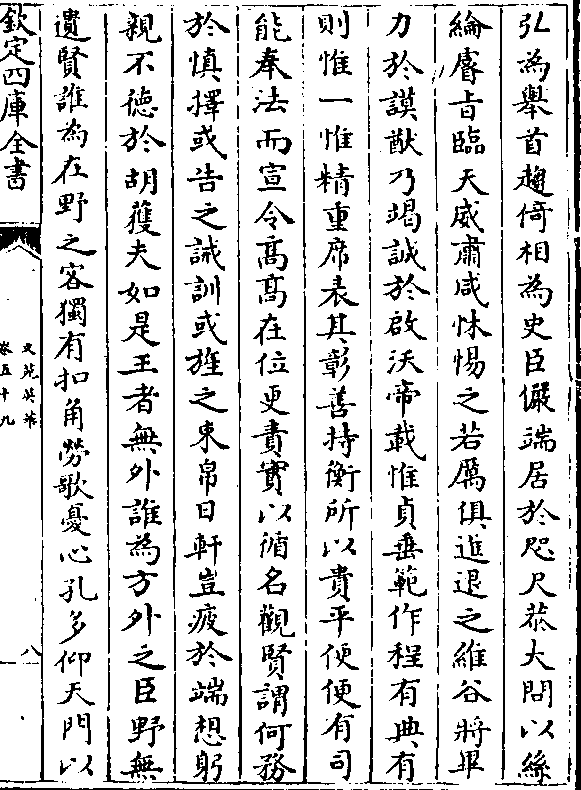 弘為舉首趙倚相為史臣儼端居於咫尺恭大問以絲
綸睿旨臨天威肅咸怵惕之若厲俱進退之維谷將畢
力於謨猷乃竭誠於啟沃帝載惟貞垂範作程有典有
則惟一惟精重席表其彰善持衡所以貴平便便有司
能奉法而宣令髙髙在位更責實以循名觀賢謂何務
於慎擇或告之誡訓或旌之束帛日軒豈疲於端想躬
親不徳於胡蒦夫如是王者無外誰為方外之臣野無
遺賢誰為在野之客獨有扣角勞歌憂心孔多仰天門以
欽定四庫全書
文苑英華
卷五十九
八